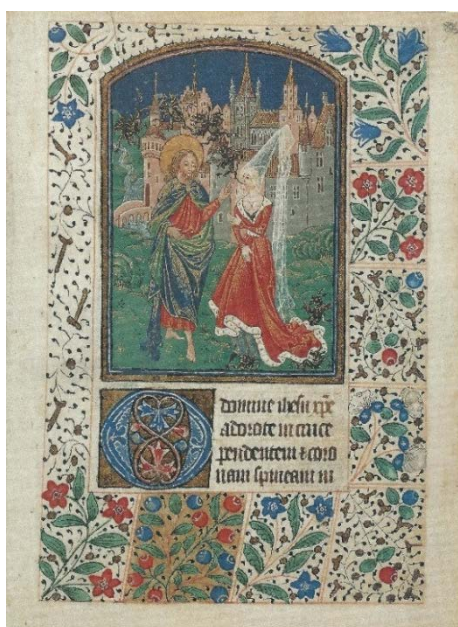 O domine ihesu xpe
adoro te in cruce
pendentem & coro
nam spineam in